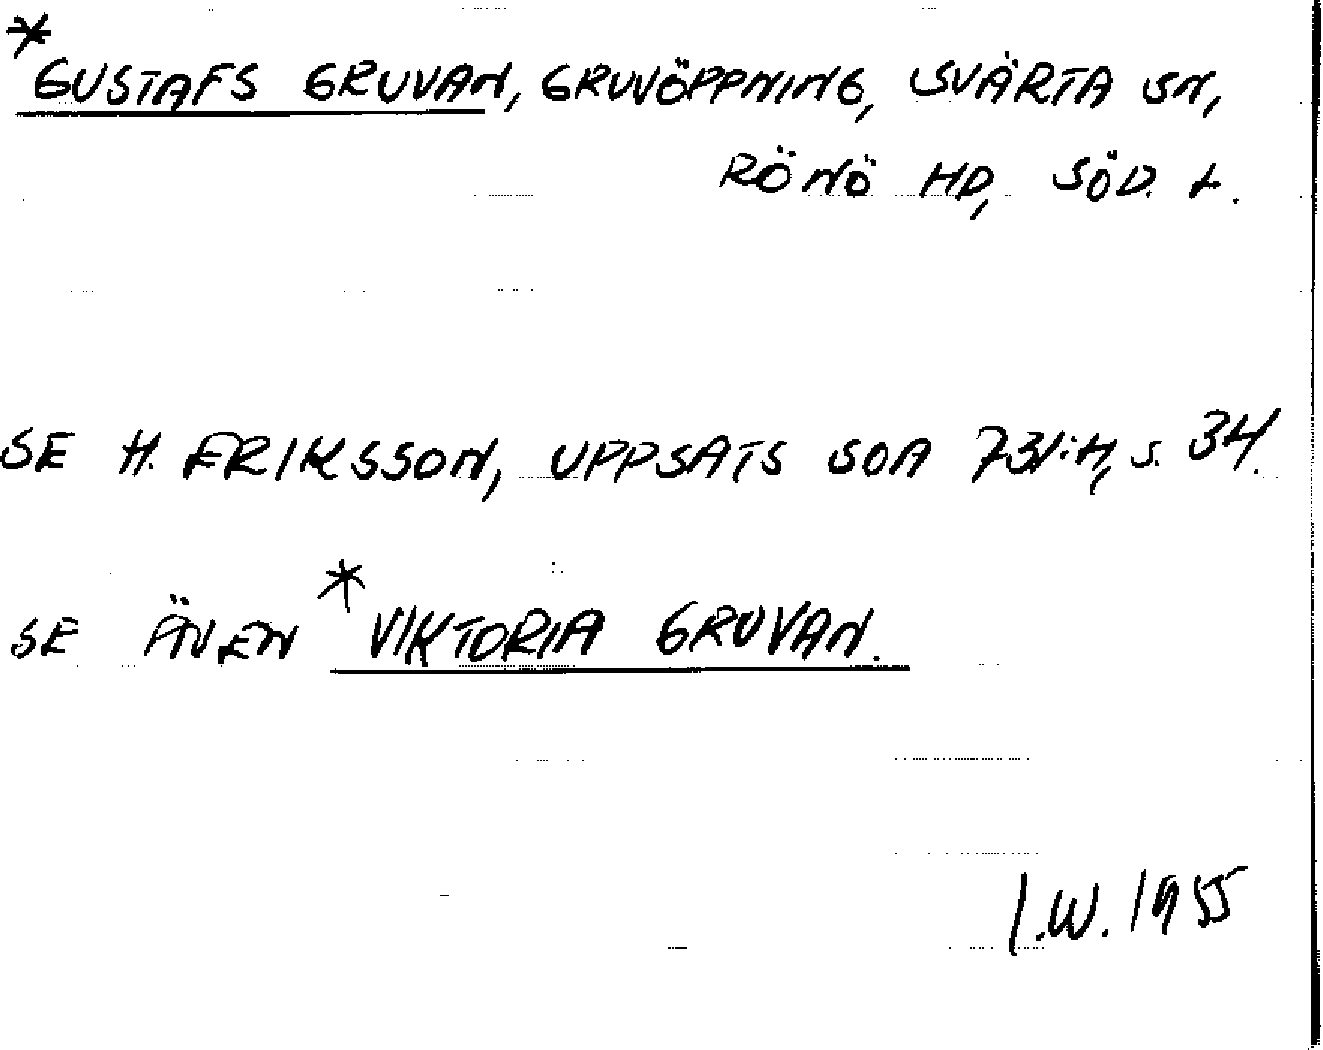 *GUSTAFS GRUVAN, GRUVÖPPNING, SVÄRTA SN,
RÖNÖ HD, SÖD. L.
SE H. ERIKSSON, UPPSATS SOA 731:H, S. 34.
SE ÄVEN *VIKTORIA GRUVAN.
I.W. 1955